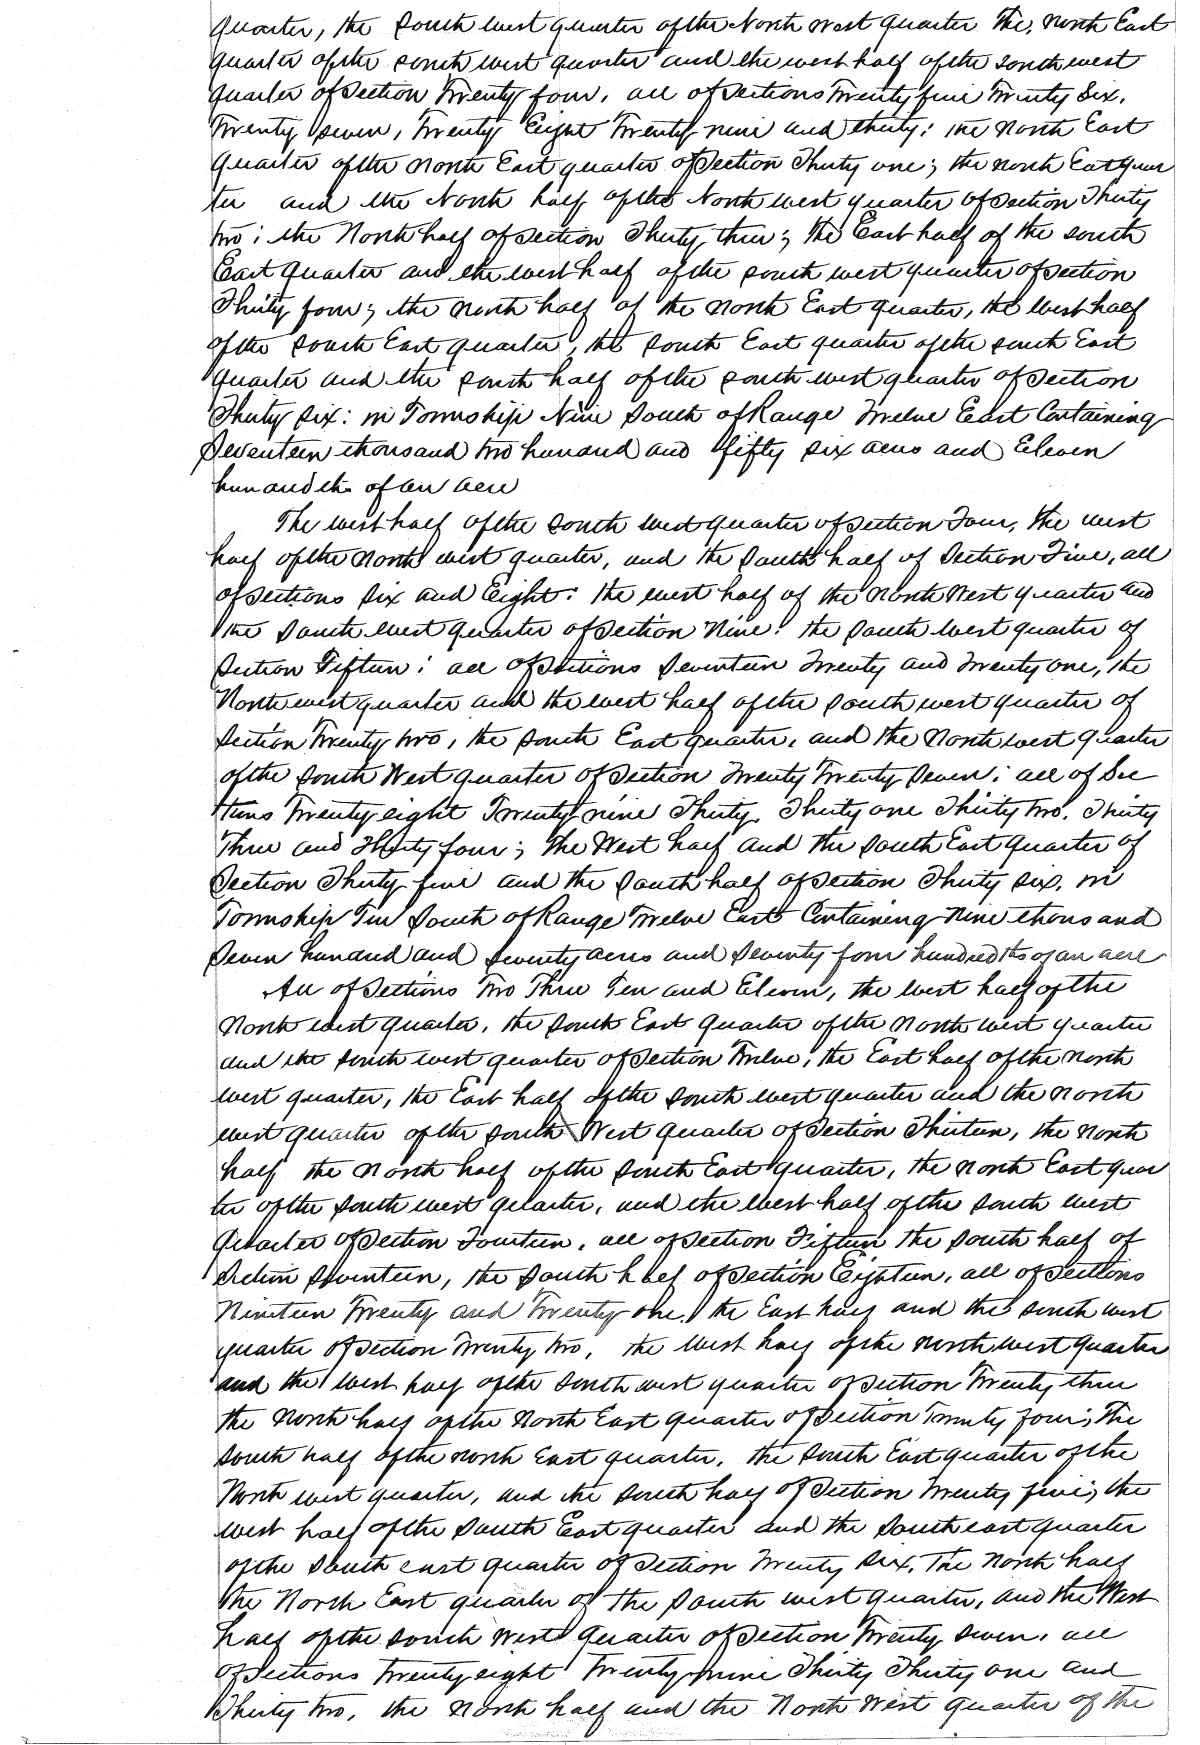 quarter, the South west quarter of the North West quarter The, North East
quarter of the south west quarter and the west half of the south west
quarter of Section Twenty four, all of Sections Twenty five Twenty Six,
Twenty seven, Twenty Eight Twenty nine and thirty: the North East
quarter of the North East quarter of Section Thirty one; the North East quar
ter and the North half of the North west quarter of Section Thirty
two; the North half of Section Thirty three; the East half of the south
East quarter and the west half of the south west quarter of Section
Thirty four; the north half of the North East quarter, the west half
of the South East quarter, the South East quarter of the south East
quarter and the south half of the south west quarter of Section
Thirty six: in Township Nine South of Range Twelve East Containing
Seventeen thousand two hundred and fifty six acres and Eleven
hundredths of an acre
The west half of the South west quarter of Section Four, the west
half of the North west quarter, and the South half of Section Five, all
of Sections Six and Eight: the west half of the North West quarter and
the South west quarter of Section Nine: the South west quarter of
Section Fifteen: all of Sections Seventeen Twenty and Twenty one, the
North west quarter and the west half of the South west quarter of
Section Twenty two, the South East quarter, and the North west quarter
of the South West quarter of Section Twenty Twenty Seven: all of Sec
tions Twenty eight Twenty nine Thirty, Thirty one Thirty two, Thirty
Three and Thirty four; the West half and the South East quarter of
Section Thirty five and the South half of Section Thirty six, in
Township Ten South of Range Twelve East Containing Nine thousand
Seven hundred and Seventy acres and Seventy four hundredths of an acre
All of Sections Two Three Ten and Eleven, the West half of the
North west quarter, the South East quarter of the North west quarter
and the south west quarter of Section Twelve, the East half of the North
west quarter, the East half of the South west quarter and the North
west quarter of the South West quarter of Section Thirteen, the North
half the North half of the South East quarter, the North East quar
ter of the South west quarter, and the West half of the South West
quarter of Section Fourteen, all of Section Fifteen the South half of
Section Seventeen, the South half of Section Eighteen, all of Sections
Nineteen Twenty and Twenty one, the East half and the South west
quarter of Section Twenty two, the West half of the North west quarter
and the west half of the South west quarter of Section Twenty three
the North half of the North East quarter of Section Twenty four; The
South half of the North East quarter, the South East quarter of the
North west quarter, and the South half of Section Twenty five; the
west half of the South East quarter and the South east quarter
of the South east quarter of Section Twenty six, The North half
the North East quarter of the South west quarter, and the West
half of the South West quarter of Section Twenty Seven, all
of Sections Twenty eight Twenty nine Thirty Thirty one and
Thirty two, the North half and the North West quarter of the